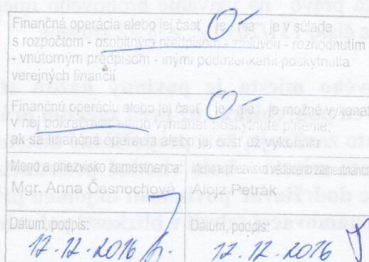 Finančná operácia alebo jej časť je - nie je v súlade
s rozpočtom - osobitným predpisom - zmluvou - rozhodnutím
- vnútorným predpisom - inými podmienkami poskytnutia
verejných financií
Finančnú operáciu alebo jej časť je - nie je možné vykonať
v nej pokračovať vymáhať poskytnuté plnenie,
ak sa finančná operácia alebo jej časť už vykonala
Meno a priezvisko zamestnanca: Meno a priezvisko vedúceho zamestnanca
Mgr. Anna Časnochová Alojz Petrák
Dátum, podpis: Dátum, podpis:
12.12.2016 12.12.2016